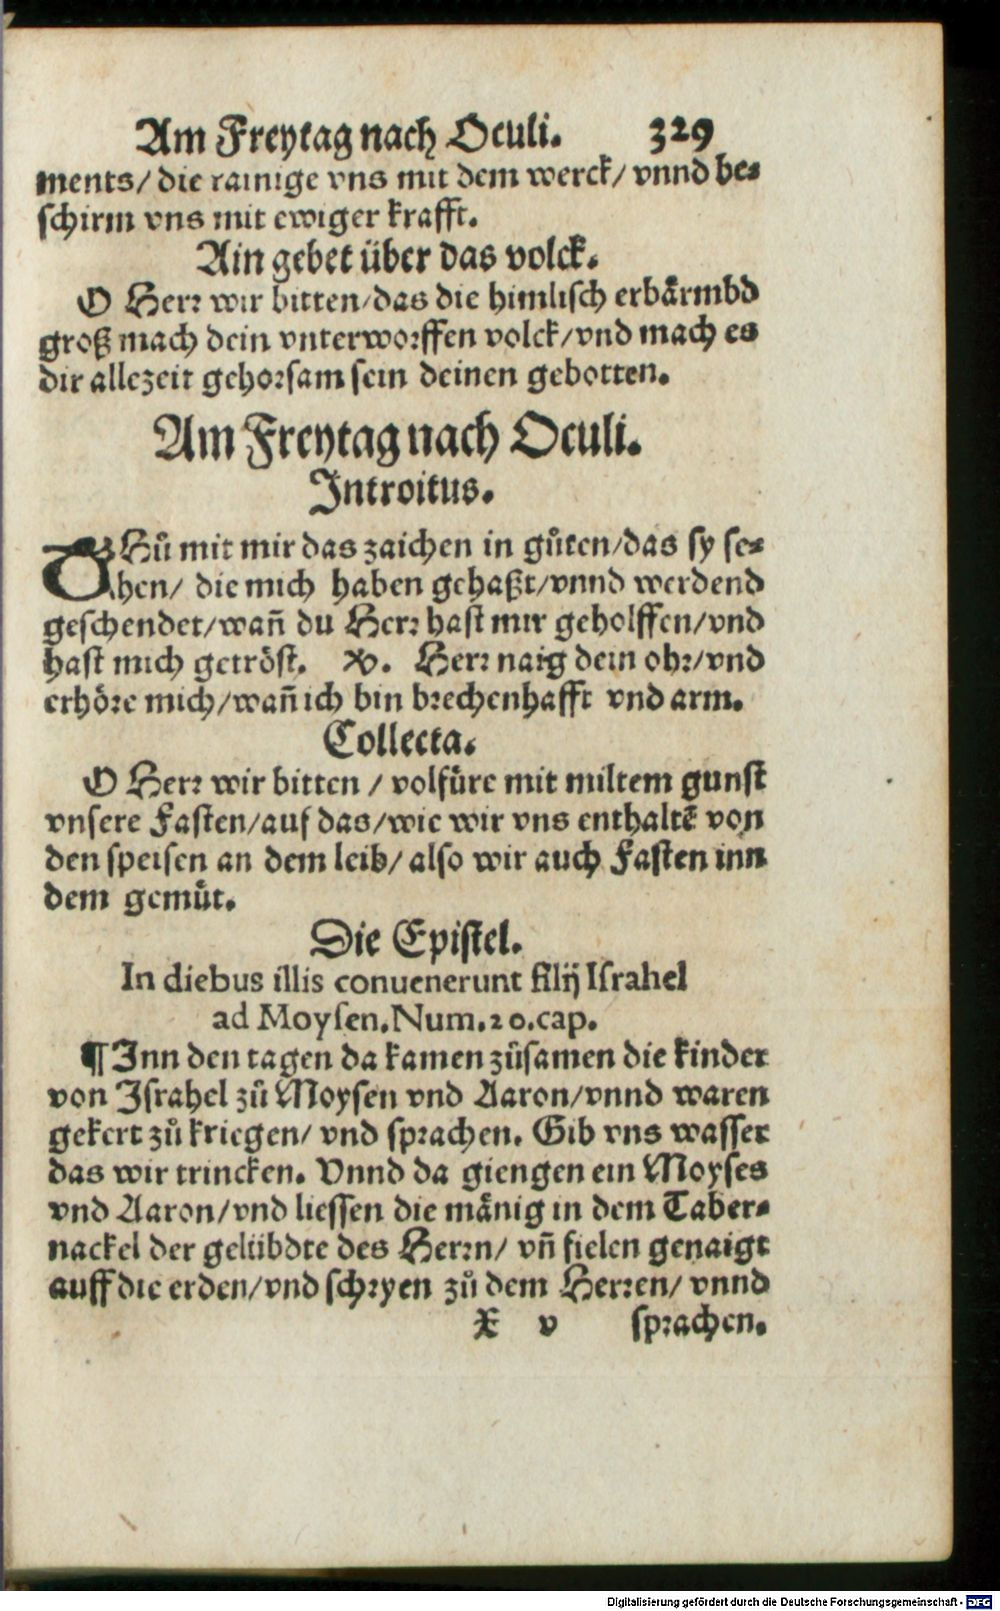 Am Freytag nach Oculi. 329
ments/ die rainige vns mit dem werck/ vnnd be⸗
schirm vns mit ewiger krafft.
Ain gebet über das volck.
O Herr wir bitten/das die himlisch erbårmbd
groß mach dein vnterworffen volck/vnd mach es
dir allezeit gehorsam sein deinen gebotten.
Am Freytag nach Oculi.
Introitus.
THů mit mir das zaichen in gůten/das sy se⸗
hen/ die mich haben gehaßt/vnnd werdend
geschendet/wañ du Herr hast mir geholffen/vnd
hast mich getröst. V. Herr naig dein ohr/vnd
erhöre mich/wañ ich bin brechenhafft vnd arm.
Collecta.
O Herr wir bitten / volfüre mit miltem gunst
vnsere Fasten/auf das/wie wir vns enthaltẽ von
den speisen an dem leib/ also wir auch Fasten inn
dem gemüt.
Die Epistel.
In diebus illis conuenerunt filij Israhel
ad Moysen. Num. 20. cap.
¶ Inn den tagen da kamen zůsamen die kinder
von Israhel zů Moysen vnd Aaron/vnnd waren
gekert zů kriegen/ vnd sprachen. Gib vns wasser
das wir trincken. Vnnd da giengen ein Moyses
vnd Aaron/vnd liessen die mänig in dem Taber⸗
nackel der gelübdte des Herrn/ vñ fielen genaigt
auff die erden/vnd schryen zů dem Herren/ vnnd
X v sprachen.
Digitalisierung gefördert durch die Deutsche Forschungsgemeinschaft - DFG